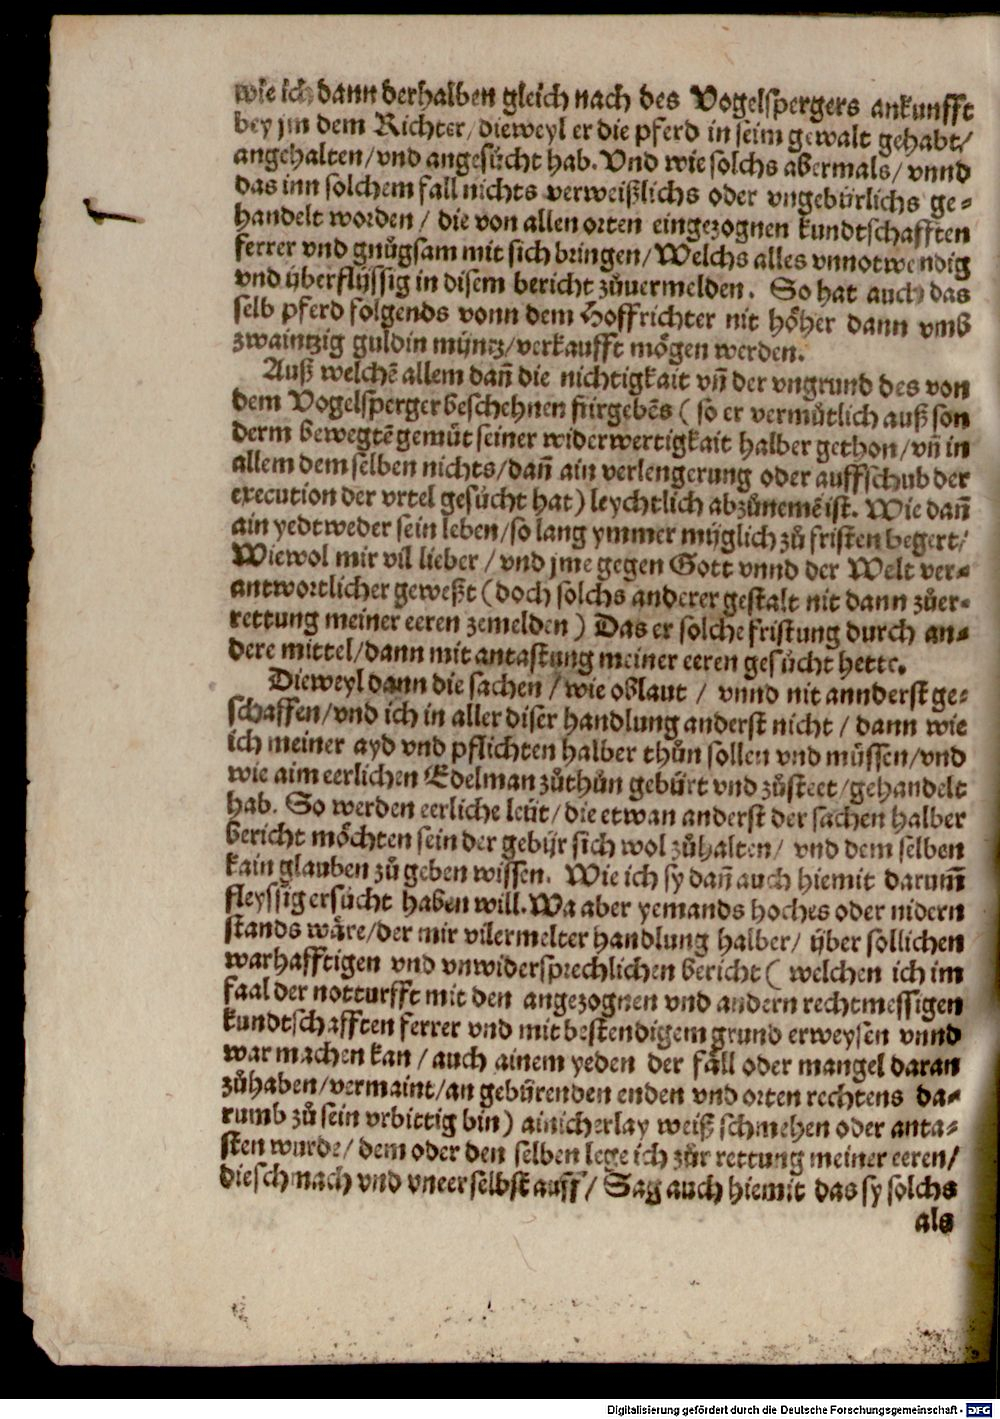 wie ich dann derhalben gleich nach des Vogelspergers ankunfft
bey jm dem Richter/ dieweyl er die pferd in seim gewalt gehabt/
angehalten/vnd angesůcht hab. Vnd wie solchs abermals/ vnnd
das inn solchem fall nichts verweißlichs oder vngebürlichs ge-
handelt worden / die von allen orten eingezognen kundtschafften
ferrer vnd gnůgsam mit sich bringen/Welchs alles vnnotwendig
vnd überflüssig in disem bericht zůuermelden. So hat auch das
selb pferd folgends vonn dem Hoffrichter nit höher dann vmb
zwaintzig guldin müntz/verkaufft mögen werden.
Auß welchē allem dañ die nichtigkait vñ der vngrund des von
dem Vogelsperger beschehnen fürgebēs ( so er vermůtlich auß son
derm bewegtē gemüt seiner widerwertigkait halber gethon/vñ in
allem dem selben nichts/dañ ain verlengerung oder auffschub der
execution der vrtel gesůcht hat) leychtlich abzůnemē ist. Wie dañ
ain yedtweder sein leben/so lang ymmer müglich zů fristen begert/
Wiewol mir vil lieber / vnd jme gegen Gott vnnd der Welt ver-
antwortlicher geweßt (doch solchs anderer gestalt nit dann zůer-
rettung meiner eeren zemelden ) Das er solche fristung durch an-
dere mittel/dann mit antastung meiner eeren gesůcht hette.
Dieweyl dann die sachen / wie oblaut / vnnd nit annderst ge-
schaffen/vnd ich in aller diser handlung anderst nicht / dann wie
ich meiner ayd vnd pflichten halber thůn sollen vnd müssen/vnd
wie aim eerlichen Edelman zůthůn gebürt vnd zůsteet/gehandelt
hab. So werden eerliche leüt/die etwan anderst der sachen halber
bericht möchten sein der gebür sich wol zůhalten/ vnd dem selben
kain glauben zů geben wissen. Wie ich sy dañ auch hiemit darum̄
fleyssig ersůcht haben will. Wa aber yemands hoches oder nidern
stands wäre/der mir vilermelter handlung halber/ über sollichen
warhafftigen vnd vnwidersprechlichen bericht ( welchen ich im
faal der notturfft mit den angezognen vnd andern rechtmessigen
kundtschafften ferrer vnd mit bestendigem grund erweysen vnnd
war machen kan / auch ainem yeden der fäll oder mangel daran
zůhaben/vermaint/an gebürenden enden vnd orten rechtens da-
rumb zů sein vrbittig bin) ainicherlay weiß schmehen oder anta-
sten wurde/ dem oder den selben lege ich zůr rettung meiner eeren/
die schmach vnd vneer selbst auff/ Sag auch hiemit das sy solchs
als
Digitalisierung gefördert durch die Deutsche Forschungsgemeinschaft - DFG